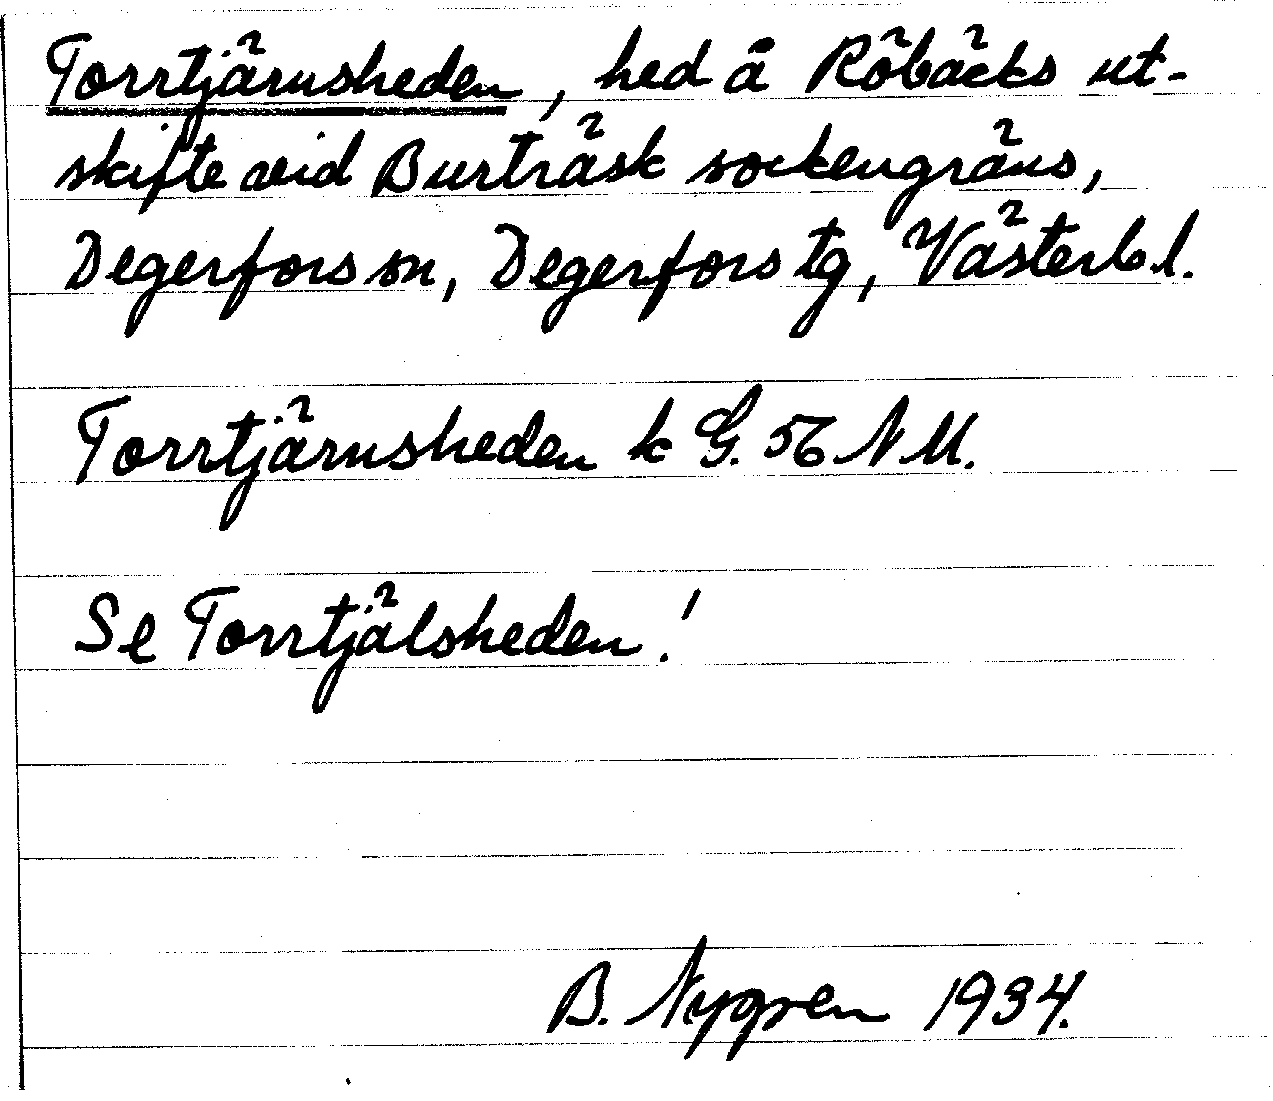 Torrtjärnsheden, hed å Röbäcks ut-
skifte vid Burträsk sockengräns,
Degerfors sn, Degerfors tg, Västerb. l.
Torrtjärnsheden k G. 56 NM.
Se Torrtjälsheden!
B. Nygren 1934.